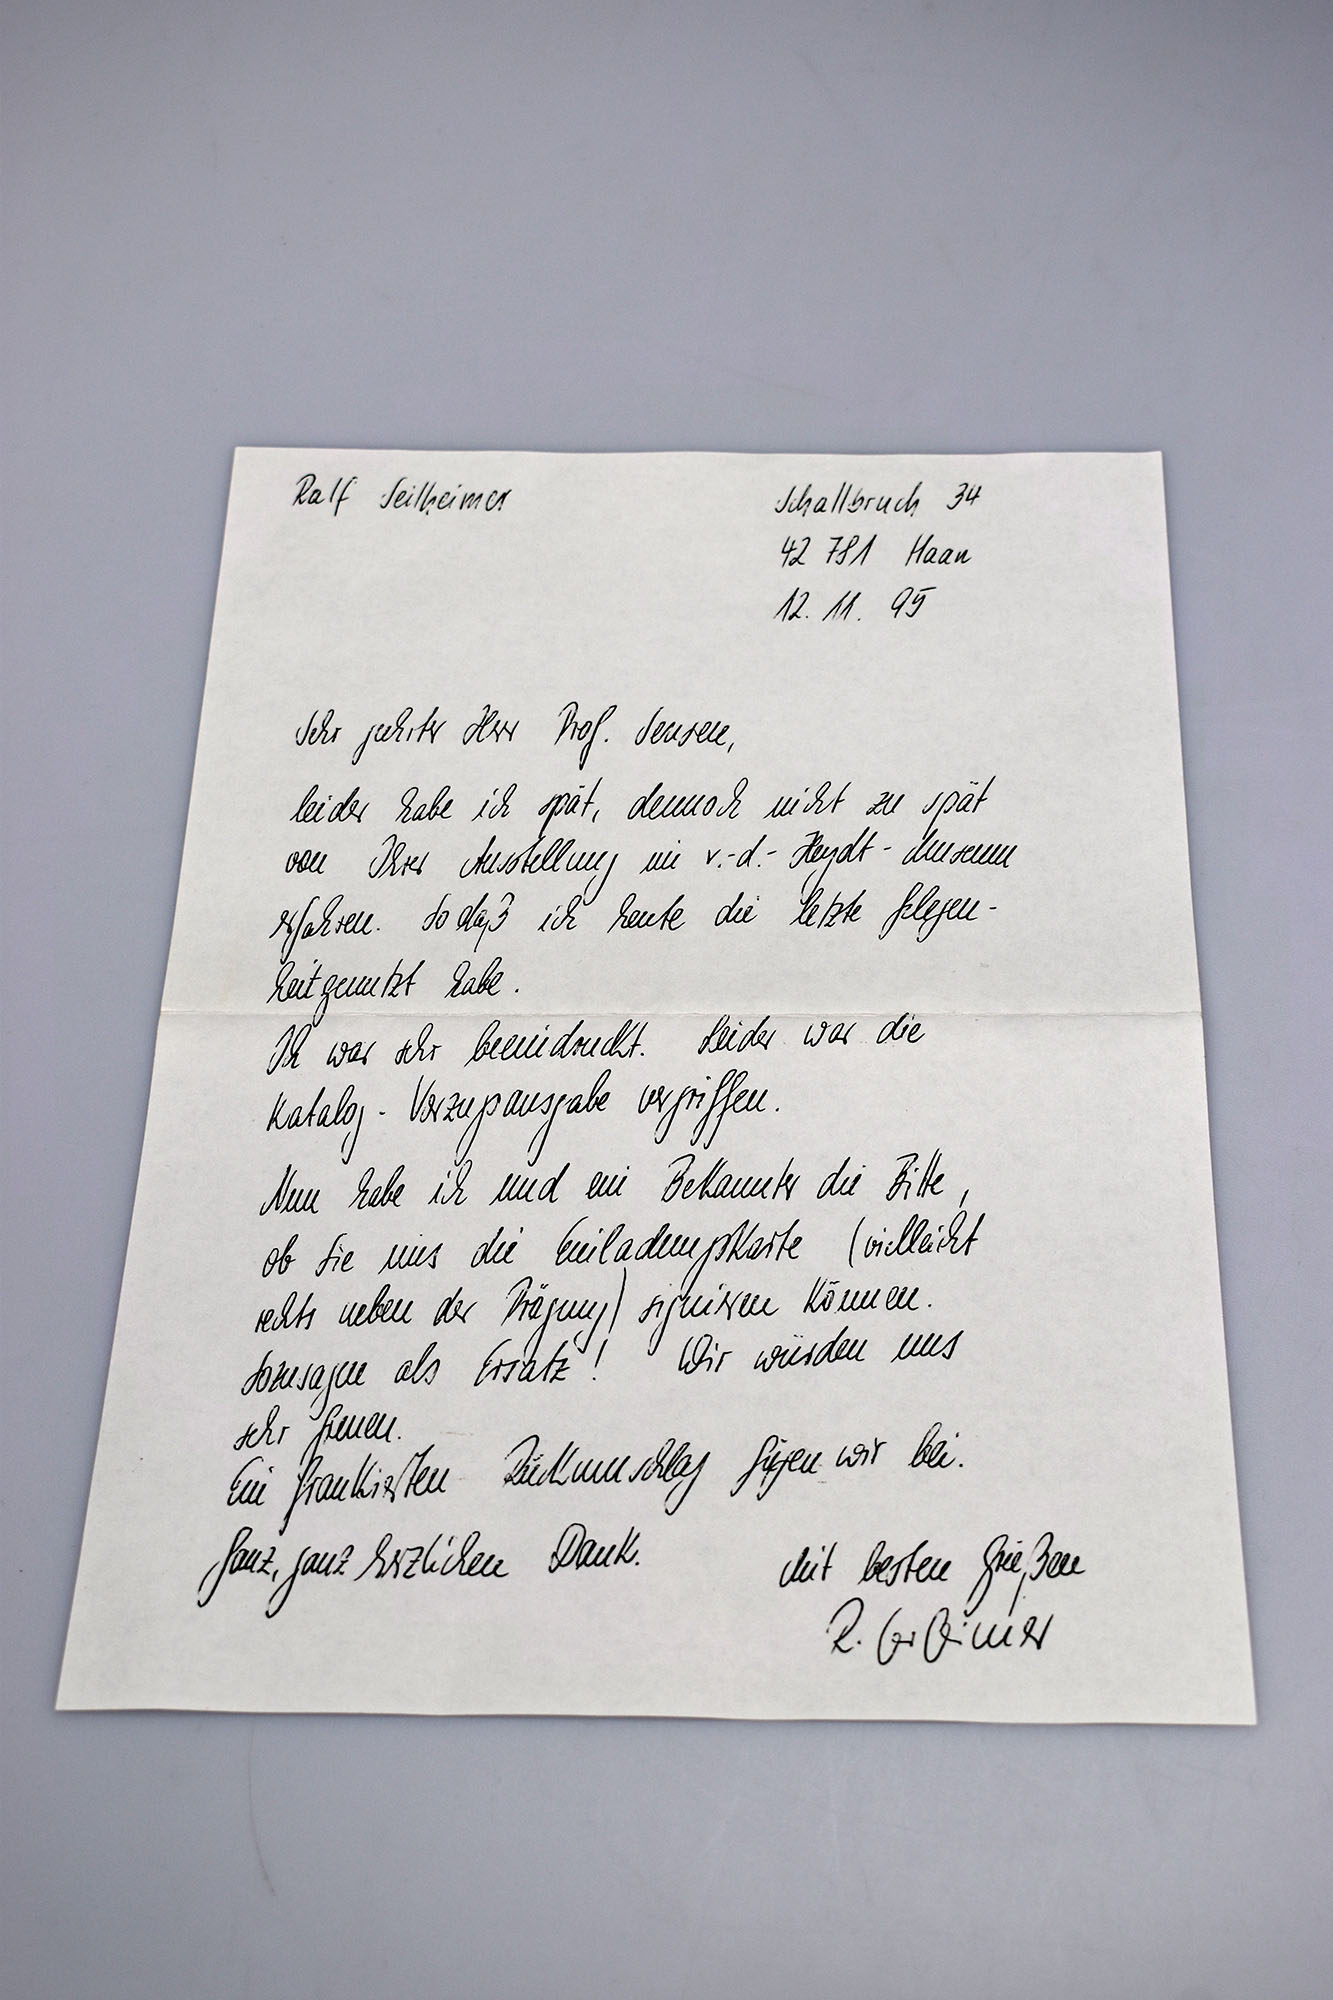 Ralf Seilheimer
Schallbruch 34
42 781 Haan
12. 11. 95
Sehr geehrter Herr Prof. Sensen,
leider habe ich spät, dennoch nicht zu spät
von Ihrer Ausstellung im v.-d.-Heydt-Museum
erfahren. So daß ich heute die letzte Gelegen-
heit genutzt habe.
Ich war sehr beeindruckt. Leider war die
Katalog-Vorzugsausgabe vergriffen.
Nun habe ich und ein Bekannter die Bitte,
ob Sie uns die Einladungskarte (vielleicht
rechts neben der Prägung) signieren können.
Sozusagen als Ersatz! Wir würden uns
sehr freuen.
Ein frankierten Rückumschlag fügen wir bei.
Ganz, ganz herzlichen Dank.
Mit besten Grüßen
R. Seilheimer